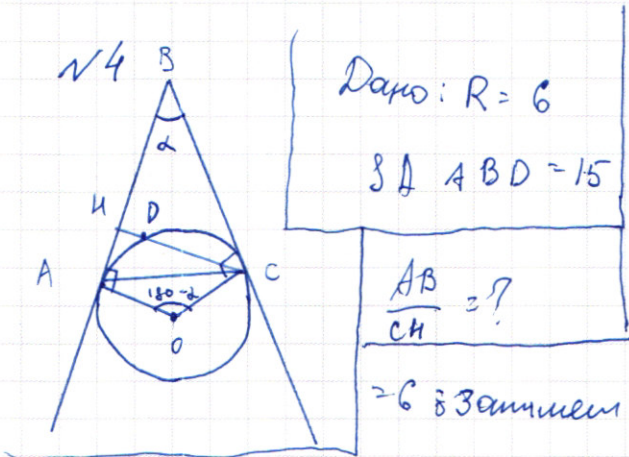 №4
B
α
H
D
A
C
180-α
O
Дано: R = 6
SΔ ABD = 15
AB
CH = ?
= 6 Запишем